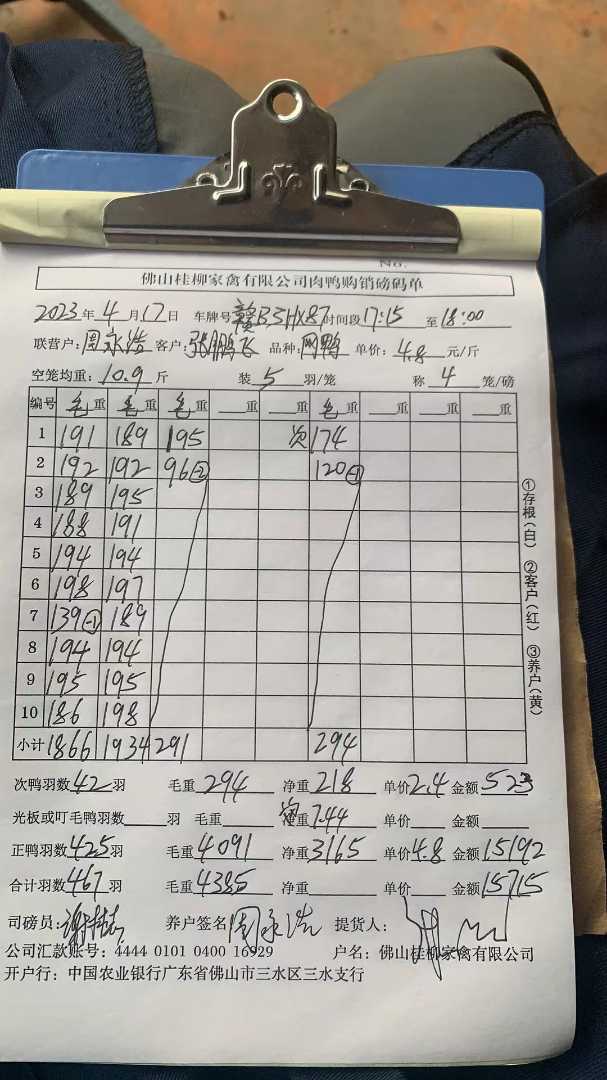 No.
佛山桂柳家禽有限公司肉鸭购销磅码单
2023年 4 月 17 日 车牌号 赣B5HX87 时间段 17:15 至 18:00
联营户: 周永浩 客户: 张鹏飞 品种: 网鸭 单价: 4.8 元/斤
空笼均重: 10.9 斤 装 5 羽/笼 称 4 笼/磅
编号 毛重 毛重 毛重 重 重 毛重 重 重 重
1 191 189 195 次 174
2 192 192 96 -2 120 -1
3 189 195
4 188 191
5 194 194
6 198 197
7 139 -1 189
8 194 194
9 195 195
10 186 198
小计 1866 1934 291 294
次鸭羽数 42 羽 毛重 294 净重 218 单价 2.4 金额 523
光板或叮毛鸭羽数 羽 毛重 重 7.44 单价 金额
正鸭羽数 425 羽 毛重 4091 净重 3165 单价 4.8 金额 15192
合计羽数 467 羽 毛重 4385 净重 单价 金额 15715
司磅员: 养户签名 周永浩 提货人:
公司汇款账号: 4444 0101 0400 16929 户名: 佛山桂柳家禽有限公司
开户行: 中国农业银行广东省佛山市三水区三水支行
①存根(白) ②客户(红) ③养户(黄)